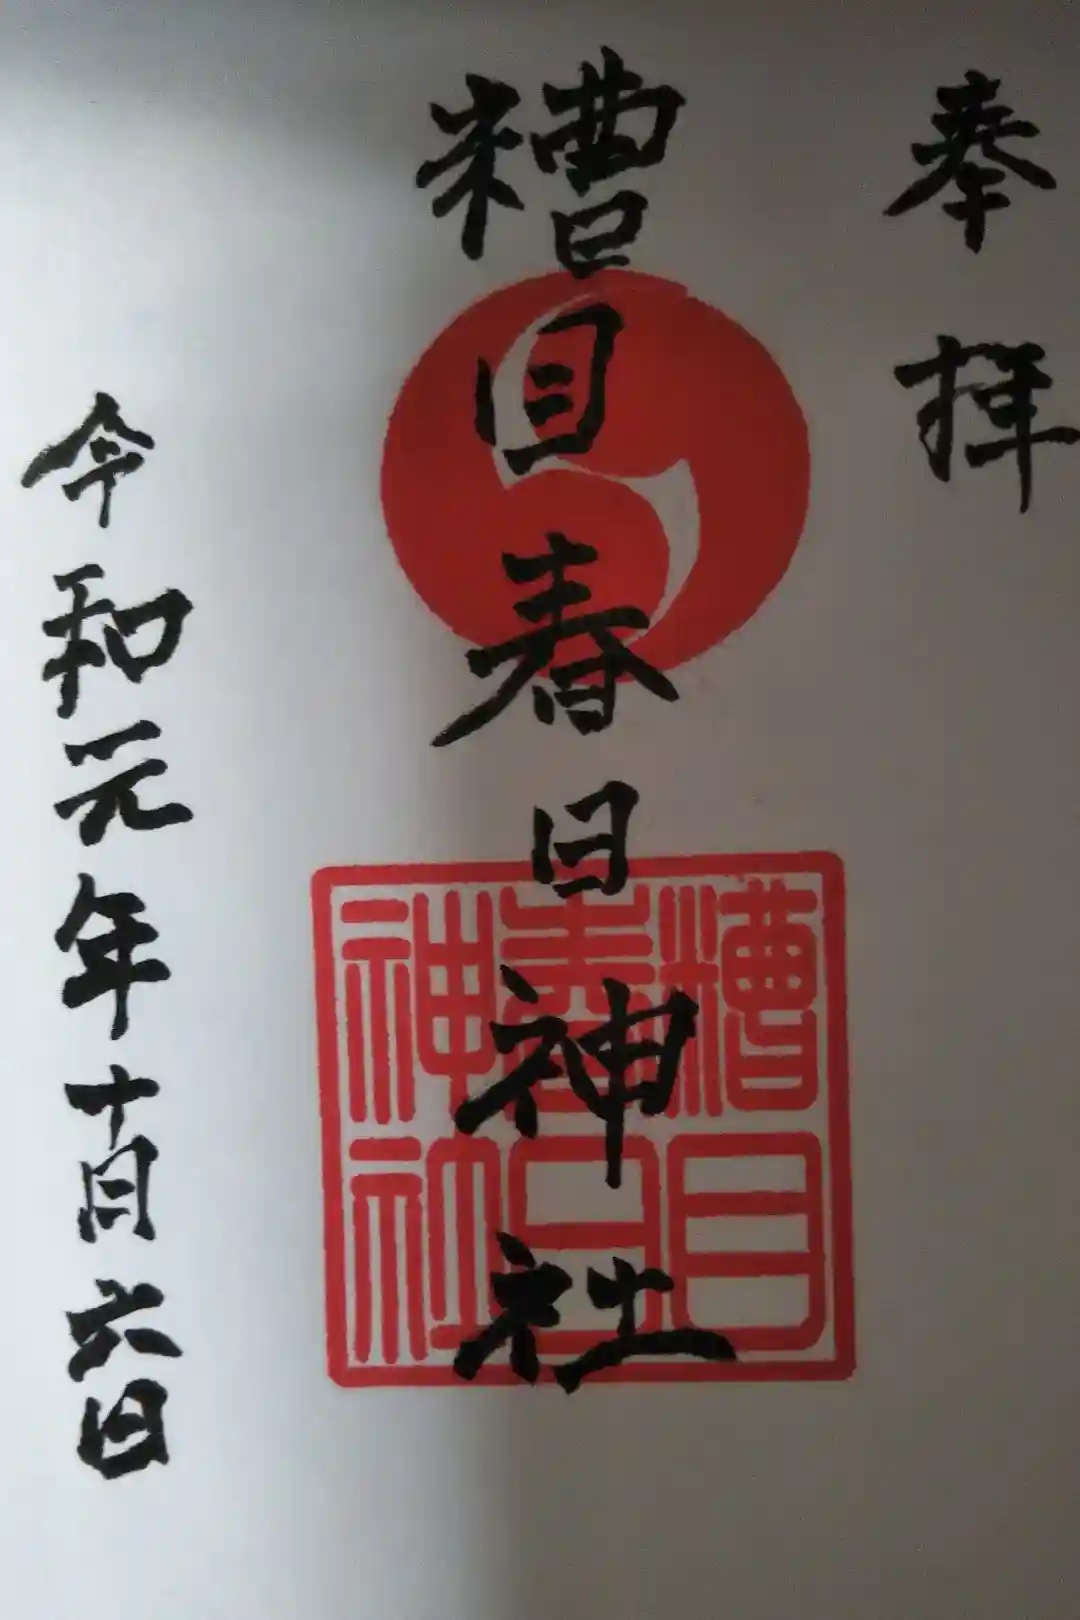 奉拝
糟目春日神社
糟目春日神社
令和元年十月六日